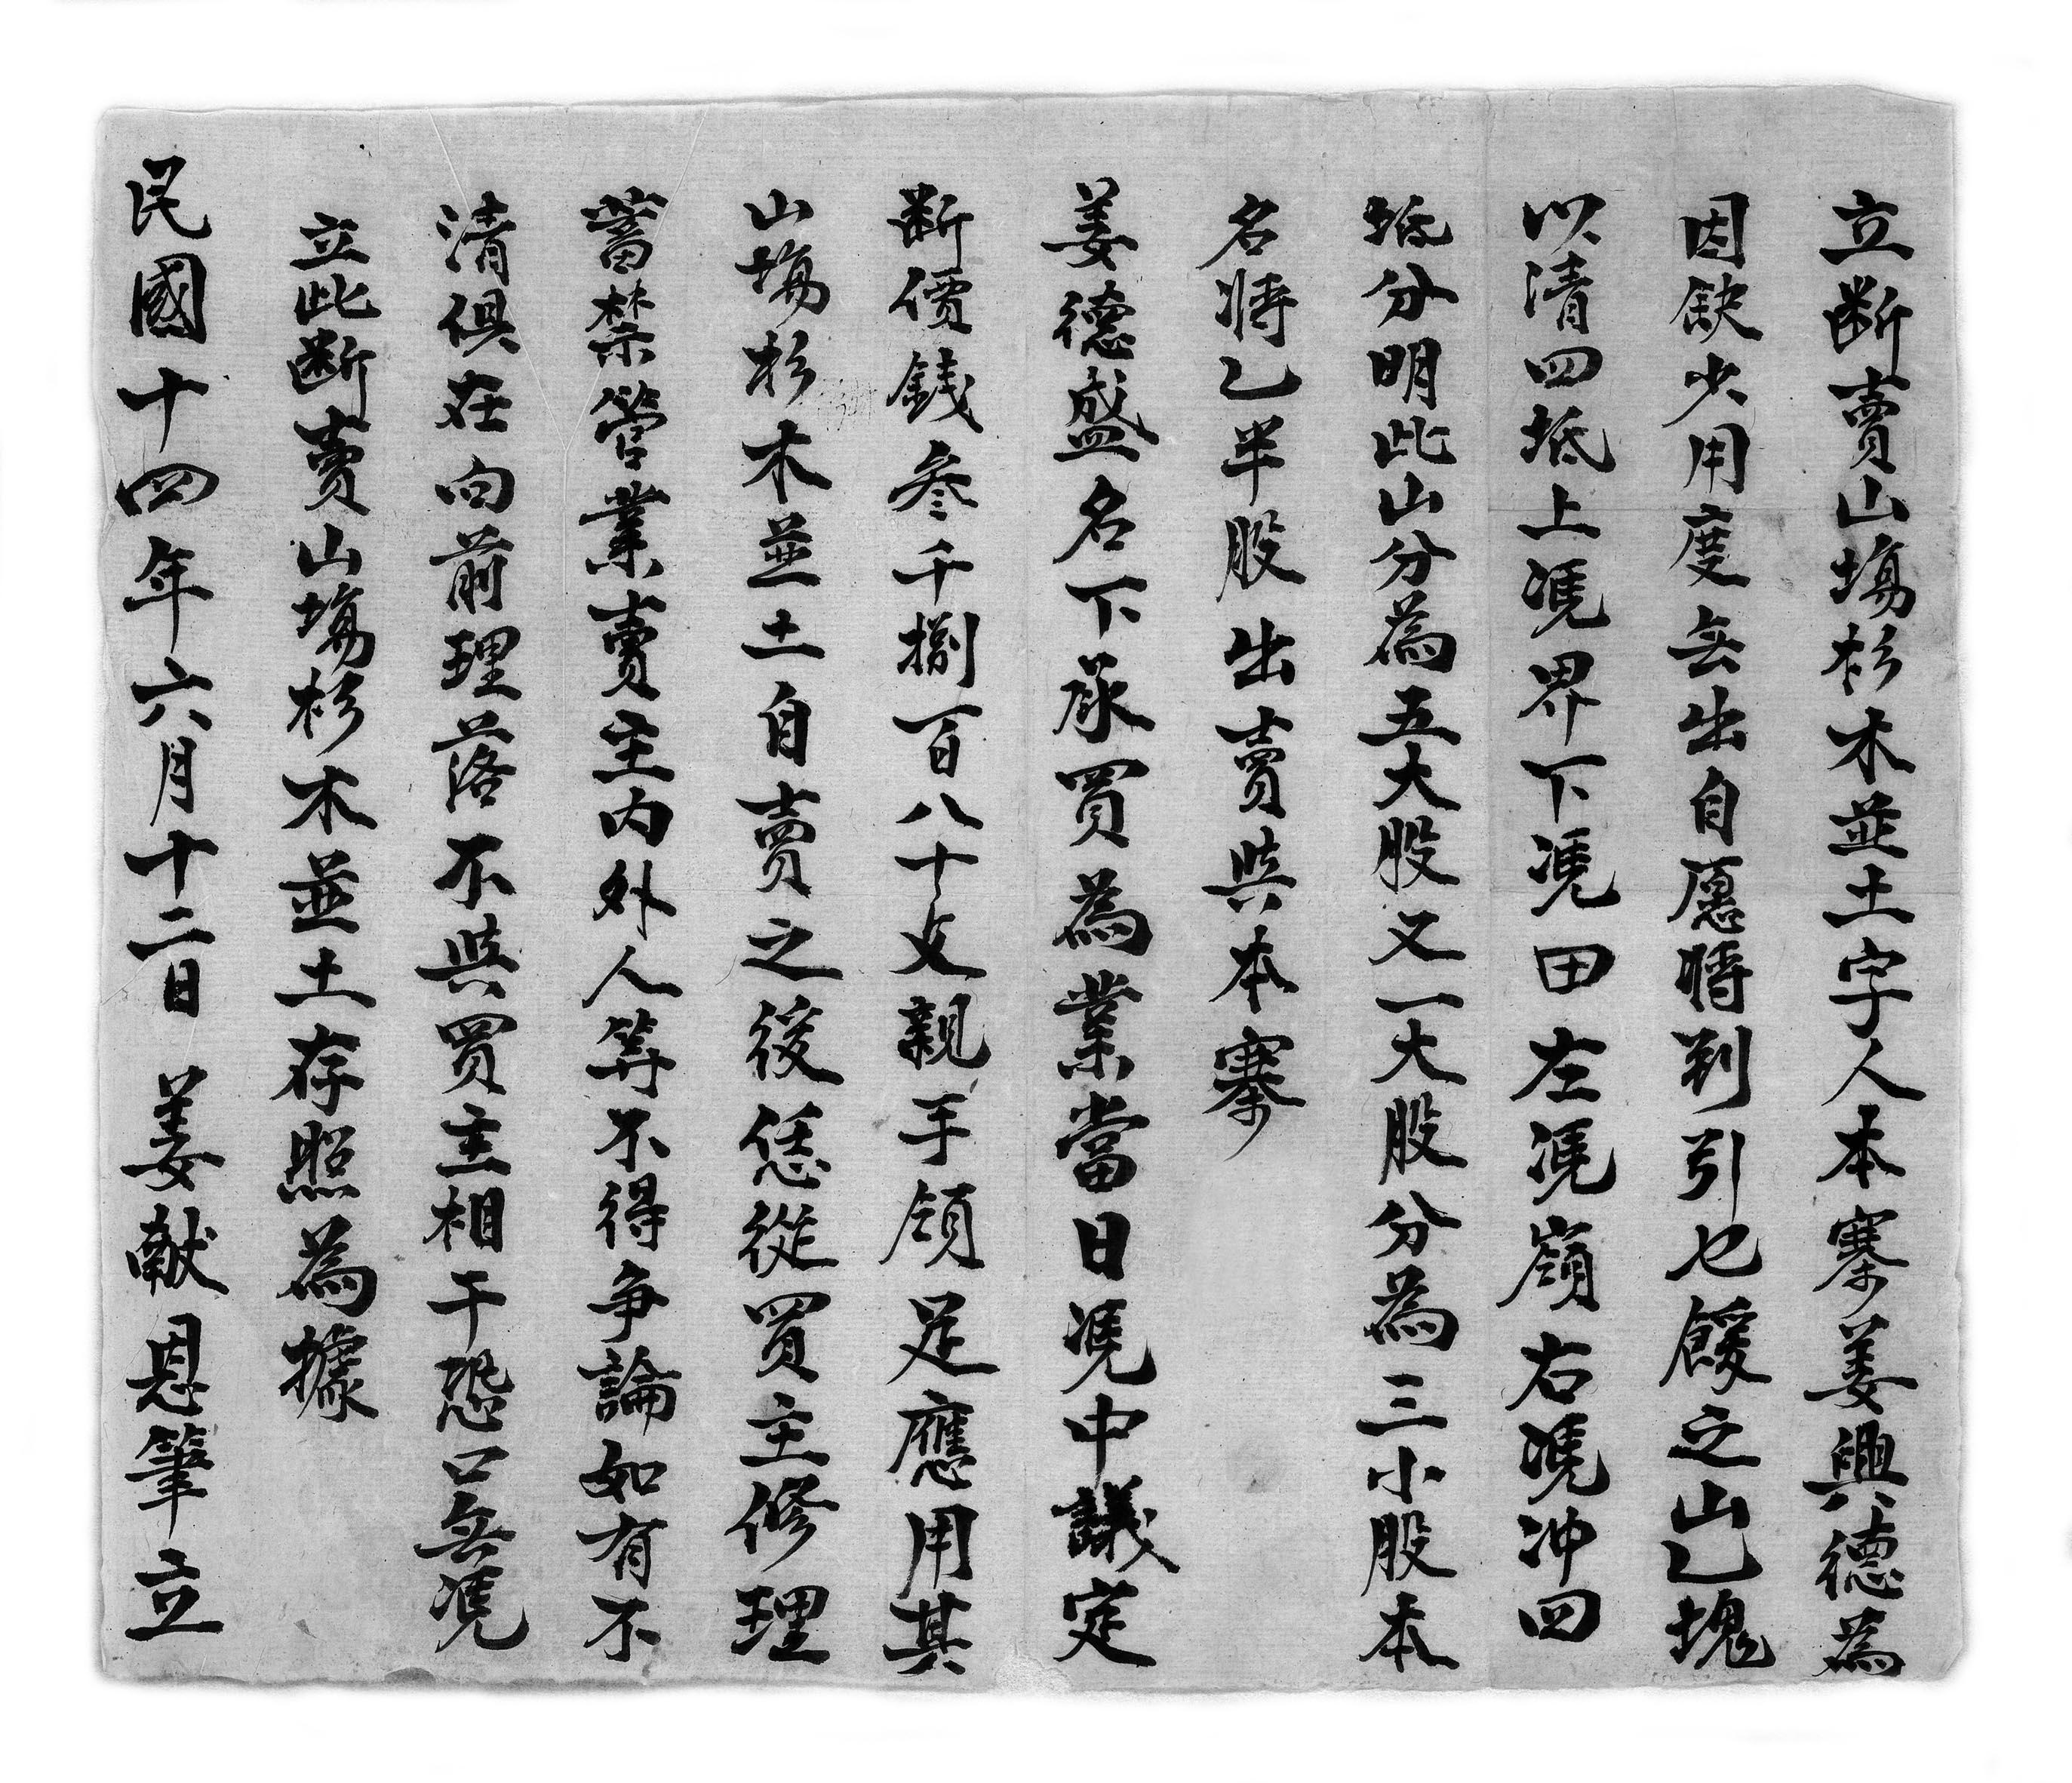 立断賣山塲杉木並土字人本寨姜興德為
因缺少用度無出自愿將到引乜餒之山乙塊
以清四坻上凴界下凴田左凴嶺右凴冲四
坻分明此山分為五大股又一大股分為三小股本
名將乙半股出賣與本寨
姜德盛名下承買為業當日凴中議定
断價銭叁千捌百八十文親手領足應用其
山塲杉木並土自賣之後恁從買主修理
蓄禁管業賣主内外人等不得争論如有不
清俱在向前理落不與買主相干恐口無凴
立此断賣山塲杉木並土存照為據
民國十四年六月十二日 姜献恩筆立